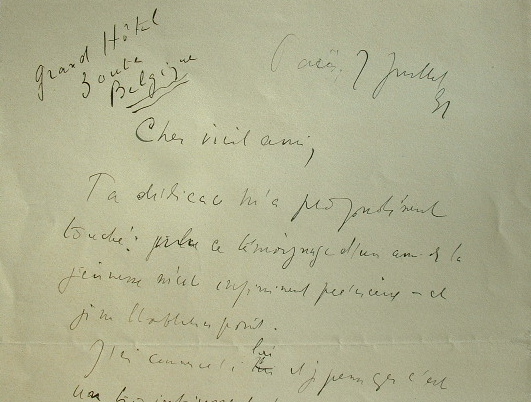 Grand Hôtel
Zoute
Belgique
Paris, 7 Juillet
31
Cher vieil ami,
Ta dédicace m'a profondément
touché: ce témoignage d'un ami de la
jeunesse m'est infiniment précieux et
je ne l'oublierai point.
J'ai commencé à lui et je